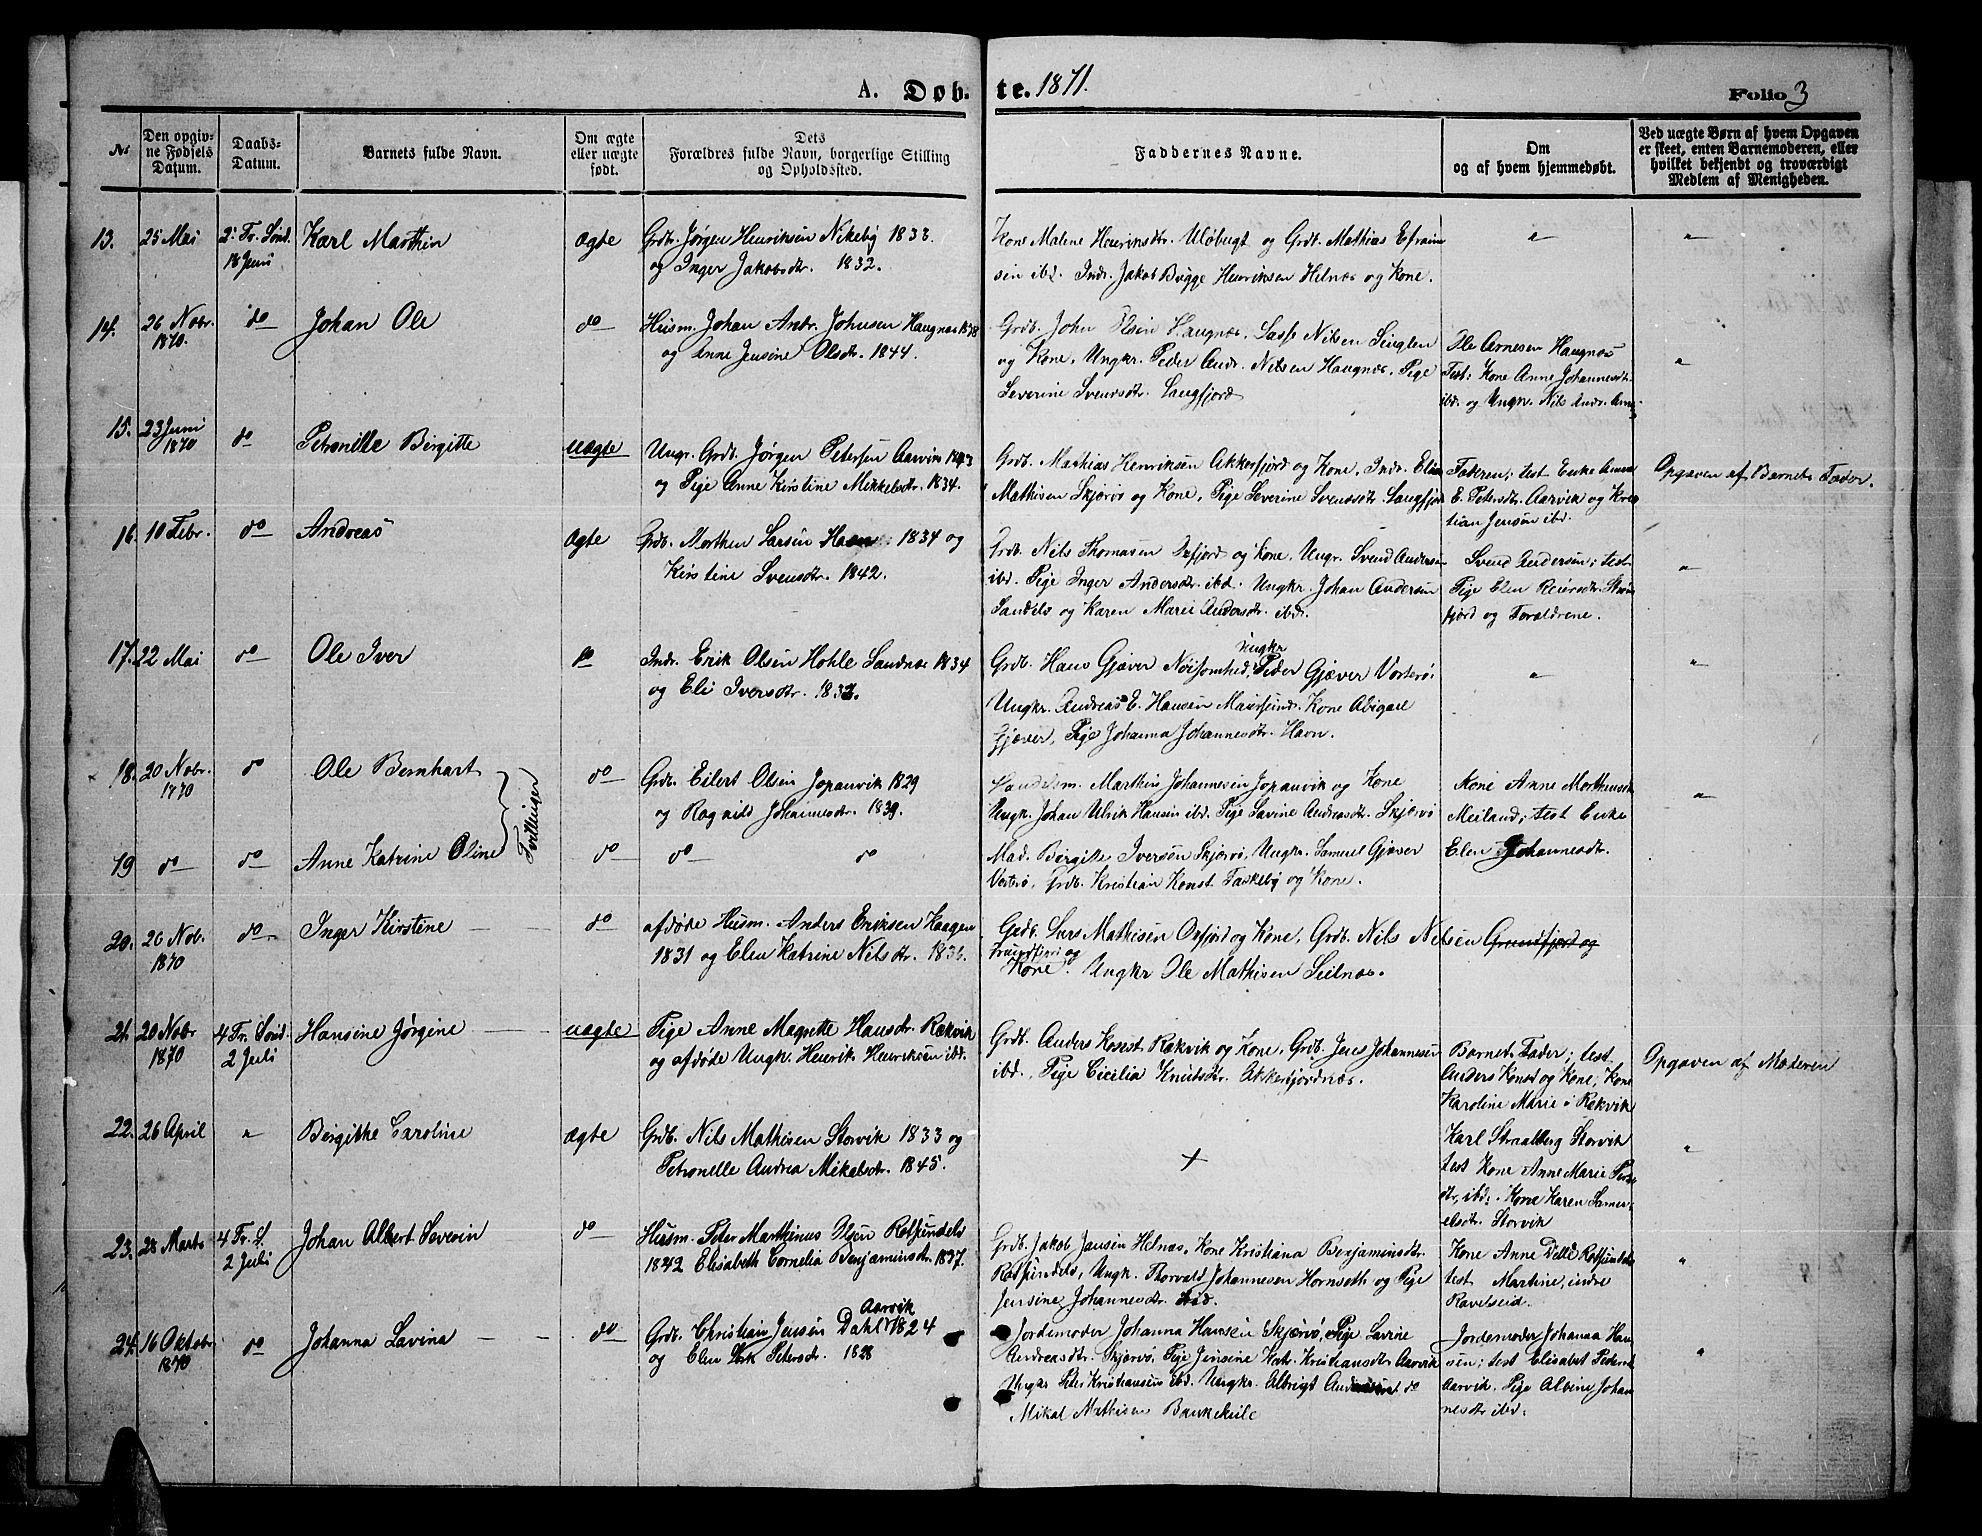 A. Døb- te. 1871. Folio 3
No
Den opgiv-
ne Fødsels
Datum.
Daabs-
Datum.
Barnets fulde Navn.
Om ægte
eller uægte
født.
Dets
Forældres fulde Navn, borgerlige Stilling
og Opholdssted.
Faddernes Navne.
Om
og af hvem hjemmedøbt.
Ved uægte Børn af hvem Opgaven
er skeet, enten Barnemoderen, eller
hvilket bekjendt og troværdigt
Medlem af Menigheden.
13. 25 Mai
2: Fr. Sønd.
18 Juni
Karl Marthin
ægte
Grdb. Jørgen Henriksen Nikeby 1833.
og Inger Jakobsdtr. 1832.
Kone Malene Henriksdtr. Uløbugt og Grdb. Mathias Efraim
sen ibd. Indr. Jakob Bygge Henriksen Helnæs og Kone.
" "
14. 26 Nobr.
1870.
do
Johan Ole
do
Husm. Johan Andr. Johnsen Haugnæs 1838
og Anne Jensine Olsdtr. 1844.
Grdb. John Olsen Haugnæs, Lasse Nilsen Singlen
og Kone, Ungkr. Peder Andr. Nilsen Haugnæs, Pige
Severine Svensdtr. Langfjord
Ole Arnesen Haugnæs
Test: Kone Anne Johannesdtr.
ibd. og Ungkr. Nils Andr. Arne-
"
15. 23 Juni
1870
do
Petronille Birgitte
uægte
Ungr. Grdb. Jørgen Petersen Aarvik 1843
og Pige Anne Kirstine Mikkelsdtr. 1834.
Grdb. Mathias Henriksen Akkerfjord og Kone, Indr. Elias
Mathisen Skjervø og Kone, Pige Severine Svendsdtr. Langfjord
Faderen; test Enke Anne
E. Petersdtr. Aarvik og Kris
tian Jensen ibd.
Opgaven af Barnets Fader.
16. 10 Febr.
do
Andreas
ægte
Grdb. Morthen Larsen Havn 1834 og
Kirstine Svensdtr. 1842.
Grdb. Nils Thomasen Oxfjord og Kone, Ungr. Svend Andersen
ibd. Pige Inger Andersdtr. ibd. Ungkr. Johan Andersen
Sandels og Karen Marie Andersdtr. ibd.
Svend Andersen; test
Pige Elen Reiersdtr. Strøm
fjord og Forældrene.
"
17. 22 Mai
do
Ole Iver
do
Indr. Erik Olsen Hohle Sandnæs 1834
og Eli Iversdtr. 1832.
Grdb. Hans Gjæver Nøisomhed, Ungkr Peder Gjæver Vorterø,
Ungkr. Andreas E. Hansen Maursund. Kone Abigael
Gjæver, Pige Johanna Johannesdtr. Havn.
" "
18. 20 Nobr.
1870
do
Ole Bernhart
Tvillinger
do
Grdb. Eilert Olsen Jøpanvik 1829
og Ragnild Johannesdtr. 1839.
Handelsm. Marthin Johannesen Jøpanvik og Kone
Ungk. Johan Ulrik Hansen ibd. Pige Lavine Andreasdtr. Skjervø
Kone Anne Morthensdtr
Meiland; test Enke
"
19 do
do
Anne Katrine Oline
do
do do
Mad. Birgitte Iversen Skjervø, Ungkr. Samuel Gjæver
Vorterø, Grdb. Kristian Konst. Taskeby og Kone.
Elen Johannesdtr.
20. 26 Nob.
1870
do
Inger Kirstine
do
afdøde Husm. Anders Eriksen Kaagen
1831 og Elen Katrine Nilsdtr. 1836.
Grdb. Lars Mathisen Oxfjord og Kone, Grdb. Nils Nilsen Grundfjord og
Grundfjord og
Kone. Ungkr Ole Mathisen Seilnæs.
21. 20 Nobr
1870
4 Fr. Sønd.
2 Juli
Hansine Jørgine
uægte
Pige Anne Magrette Hansdtr. Rækvik
og afdøde Ungk. Henrik Henriksen ibd.
Grdb. Anders Konst. Rækvik og Kone, Grdb. Jens Johannesen
ibd. Pige Cicilia Knutsdtr. Akkerfjordnæs.
Barnets Fader; test
Anders Konst og Kone, Kone
Karoline Marie i Rækvik
Opgaven af Moderen
22. 26 April
"
Birgithe Caroline
ægte
Grdb. Nils Mathisen Storvik 1833 og
Petronelle Andrea Mikalsdtr. 1845.
+
Karl Straalberg Storvik
test Kone Anne Marie Peders
dtr, ibd. Kone Karen Samu-
elsdtr. Storvik
"
23. 28 Marts
4 Fr. S.
2 Juli
Johan Albert Severin
do
Husm. Peter Marthinus Olsen Rotsundels
1842 Elisabeth Cornelia Benjaminsdtr. 1837.
Grdb. Jakob Jansen Helnæs, Kone Kristiana Benjaminsdtr.
Rotsundels, Ungk. Thorvald Johannesen Hornseth og Pige
Jensine Johannesdtr. ibid.
Kone Anne Delle Rotsundels
test Martine, indre
Ravelseid.
"
24. 16 Oktobr.
1870
do
Johanna Lavina
do
Grdb. Christian Jensen Dahl Aarvik 1824
og Elen Petersdtr. 1828
Jordemoder Johanna Hansen Skjervø, Pige Lavine
Andreasdtr. Skjervø, Pige Jensine Katr. Kristiansdtr Aarvik
Ungkr Peter Kristiansen ibd. Ungkr. Albrigt do
Mikal Mathisen Bankekeile
Jordemoder Johanna Han
sen; test Elisabet Pedersdtr
Aarvik. Pige Albine Johan
nesdtr ibid.
"